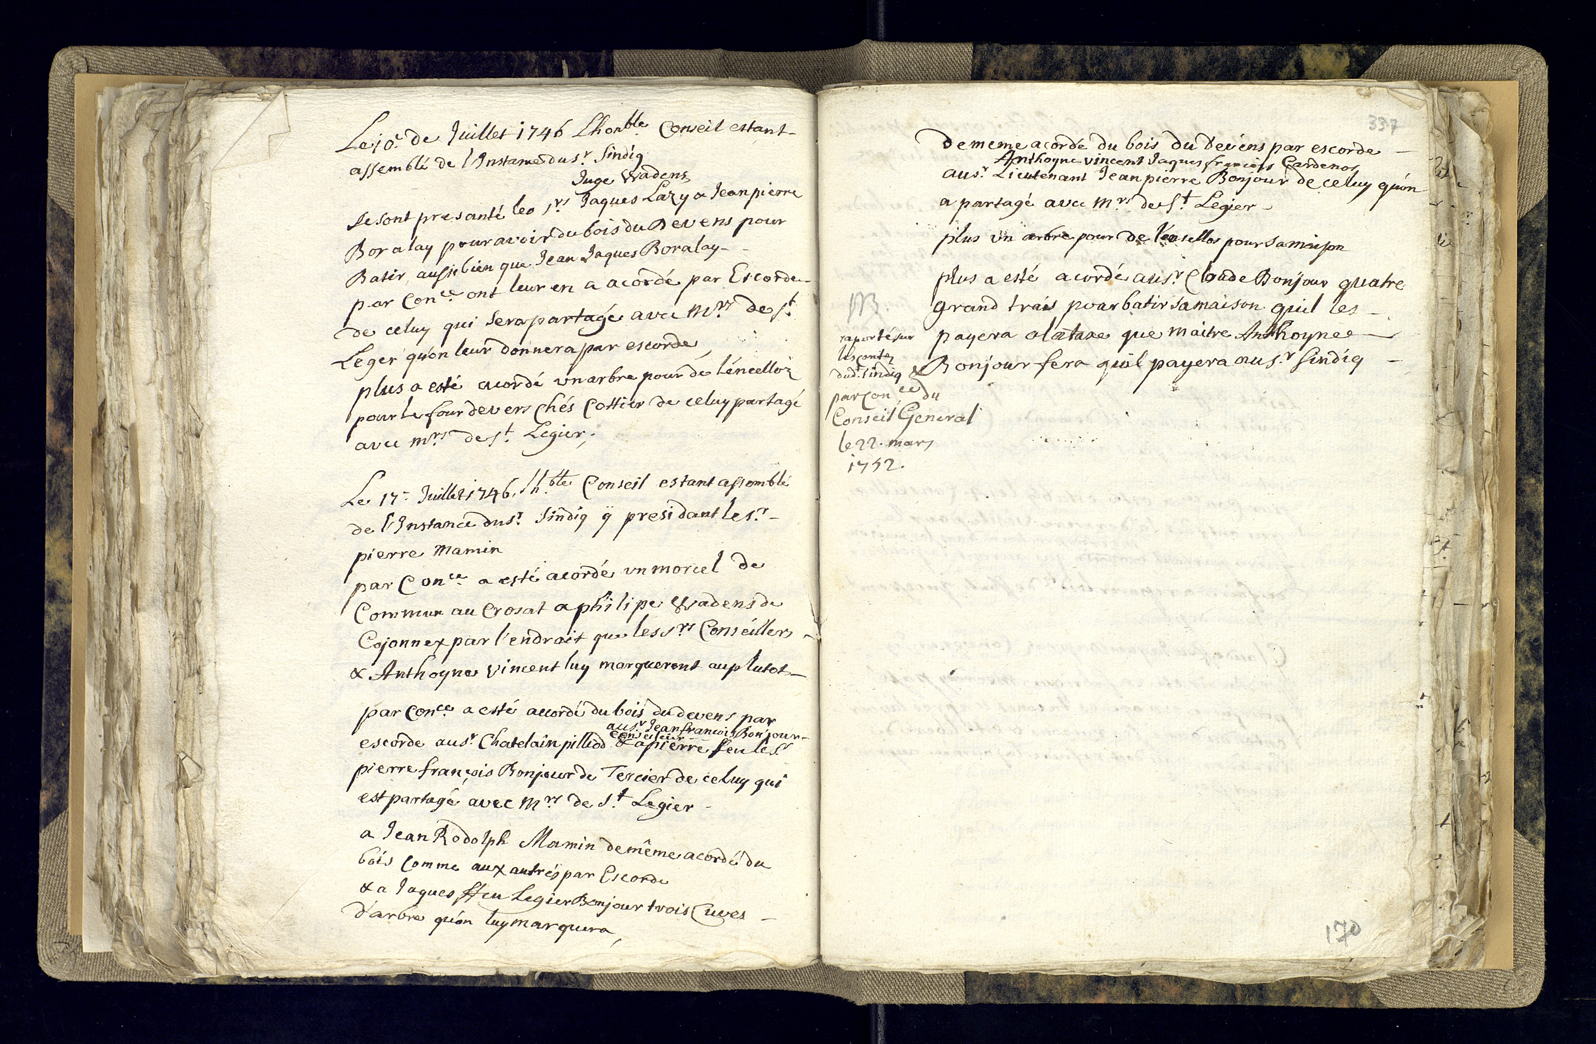 Le 10.e de Juillet 1746 Lhonble Conseil estant
assemblé de l'Instance du Sr Sindiq
Juge Wadens
Se sont presanté les Srs Jaques Lazy a Jean pierre
Boralay pour avoir du bois du Devens pour
Batir aussi bien que Jean Jaques Boralay
par Conce ont leur en a acordé par Escorde
de celuy qui Sera partagé avec Mrs de St
Leger qu'on leur donnera par escorde
plus a esté acordé un arbre pour de
pour le four devers Chés Cottier de celuy partagé
avec mrs de St. Legier,
Le 17e Juillet 1746. lhble Conseil estant assemblé
de l'Instance du Sr. Sindiq y presidant le Sr.
pierre Mamin
par Conce a esté acordé un morcel de
Commun au Crosat a philipe Wadens de
Cojonnex par l'endrait que les Srs Conseillers
& Anthoyne vincent luy marqueront au plutot
par Conce a esté acordé du bois du devens par
au Sr Jean francois Bonjour
Conseiller
escorde au Sr. Chatelain pilliod & a pierre feu le Sr
pierre françois Bonjour de Tercier de celuy qui
est partagé avec Mrs de St. Legier
a Jean Rodolph Mamin de même acordé du
bois comme aux autrés par Escorde
& a Jaques ffeu Legier Bonjour trois Cuves
d'arbre qu'on luy marquera,
337
de meme acordé du bois du devens par escorde
Anthoyne vincent Jaques françois Cardenos
au Sr. Lieutenant Jean pierre Bonjour de celuy qu'on
a partagé avec Mrs de St. Legier
plus un arbre pour de pour sa maison
plus a esté acordé au Sr. Claude Bonjour quatre
grand trais pour batir sa maison quil les
payera a la taxe que maitre Anthoyne
Bonjour fera qu'il payera au Sr Sindiq
NB
raporté sur
les contes
dud. Sindiq &
par Conce du
Conseil General
le 22. mars
1752.
170